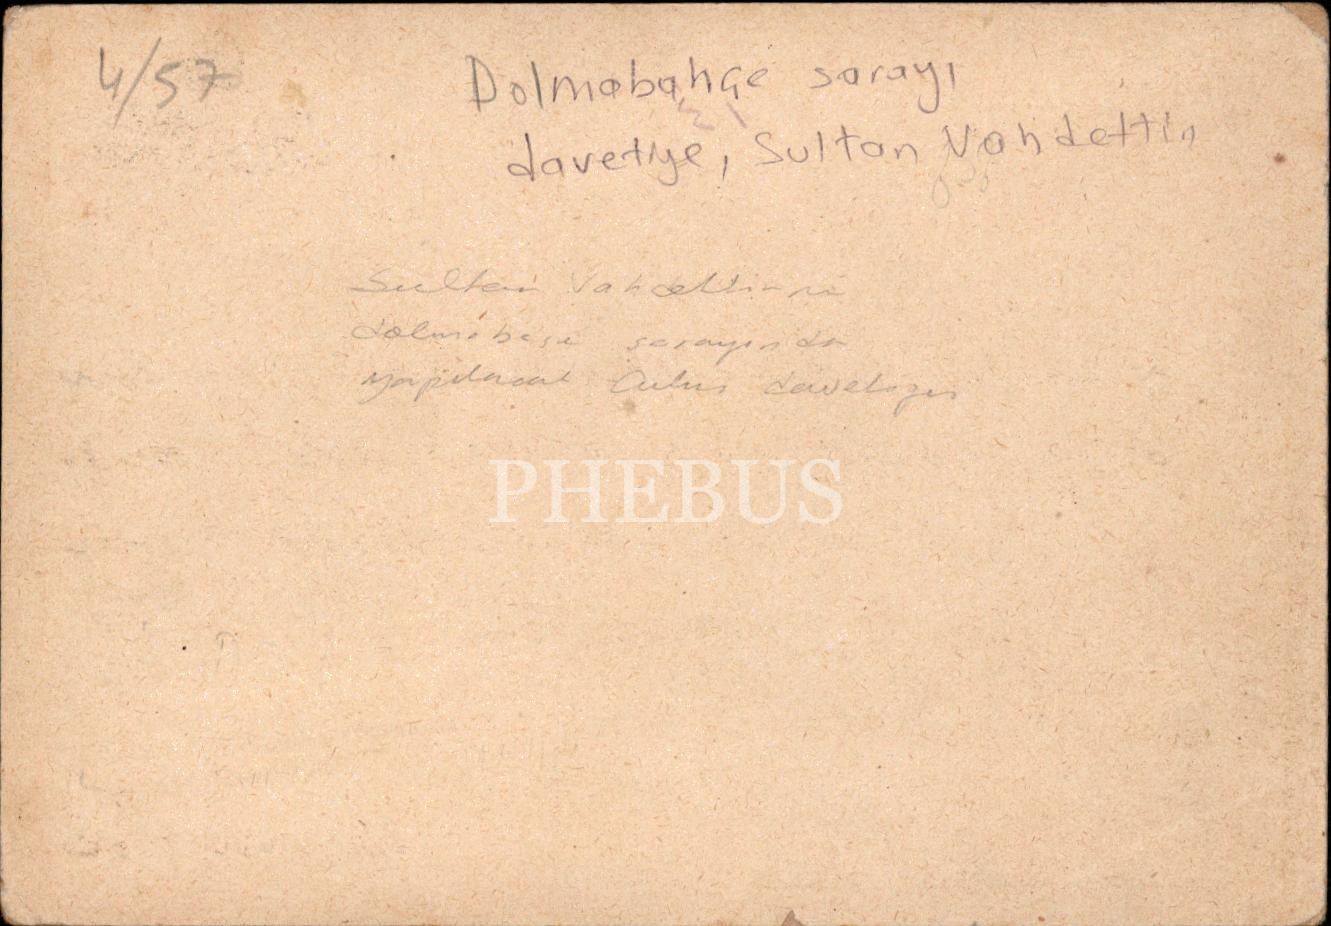 4/57
Dolmabahçe sarayı
davetiye, Sultan Vahdettin
Sultan Vahdettinni
dolmabaçe sarayında
yapılacak Culus
PHEBUS